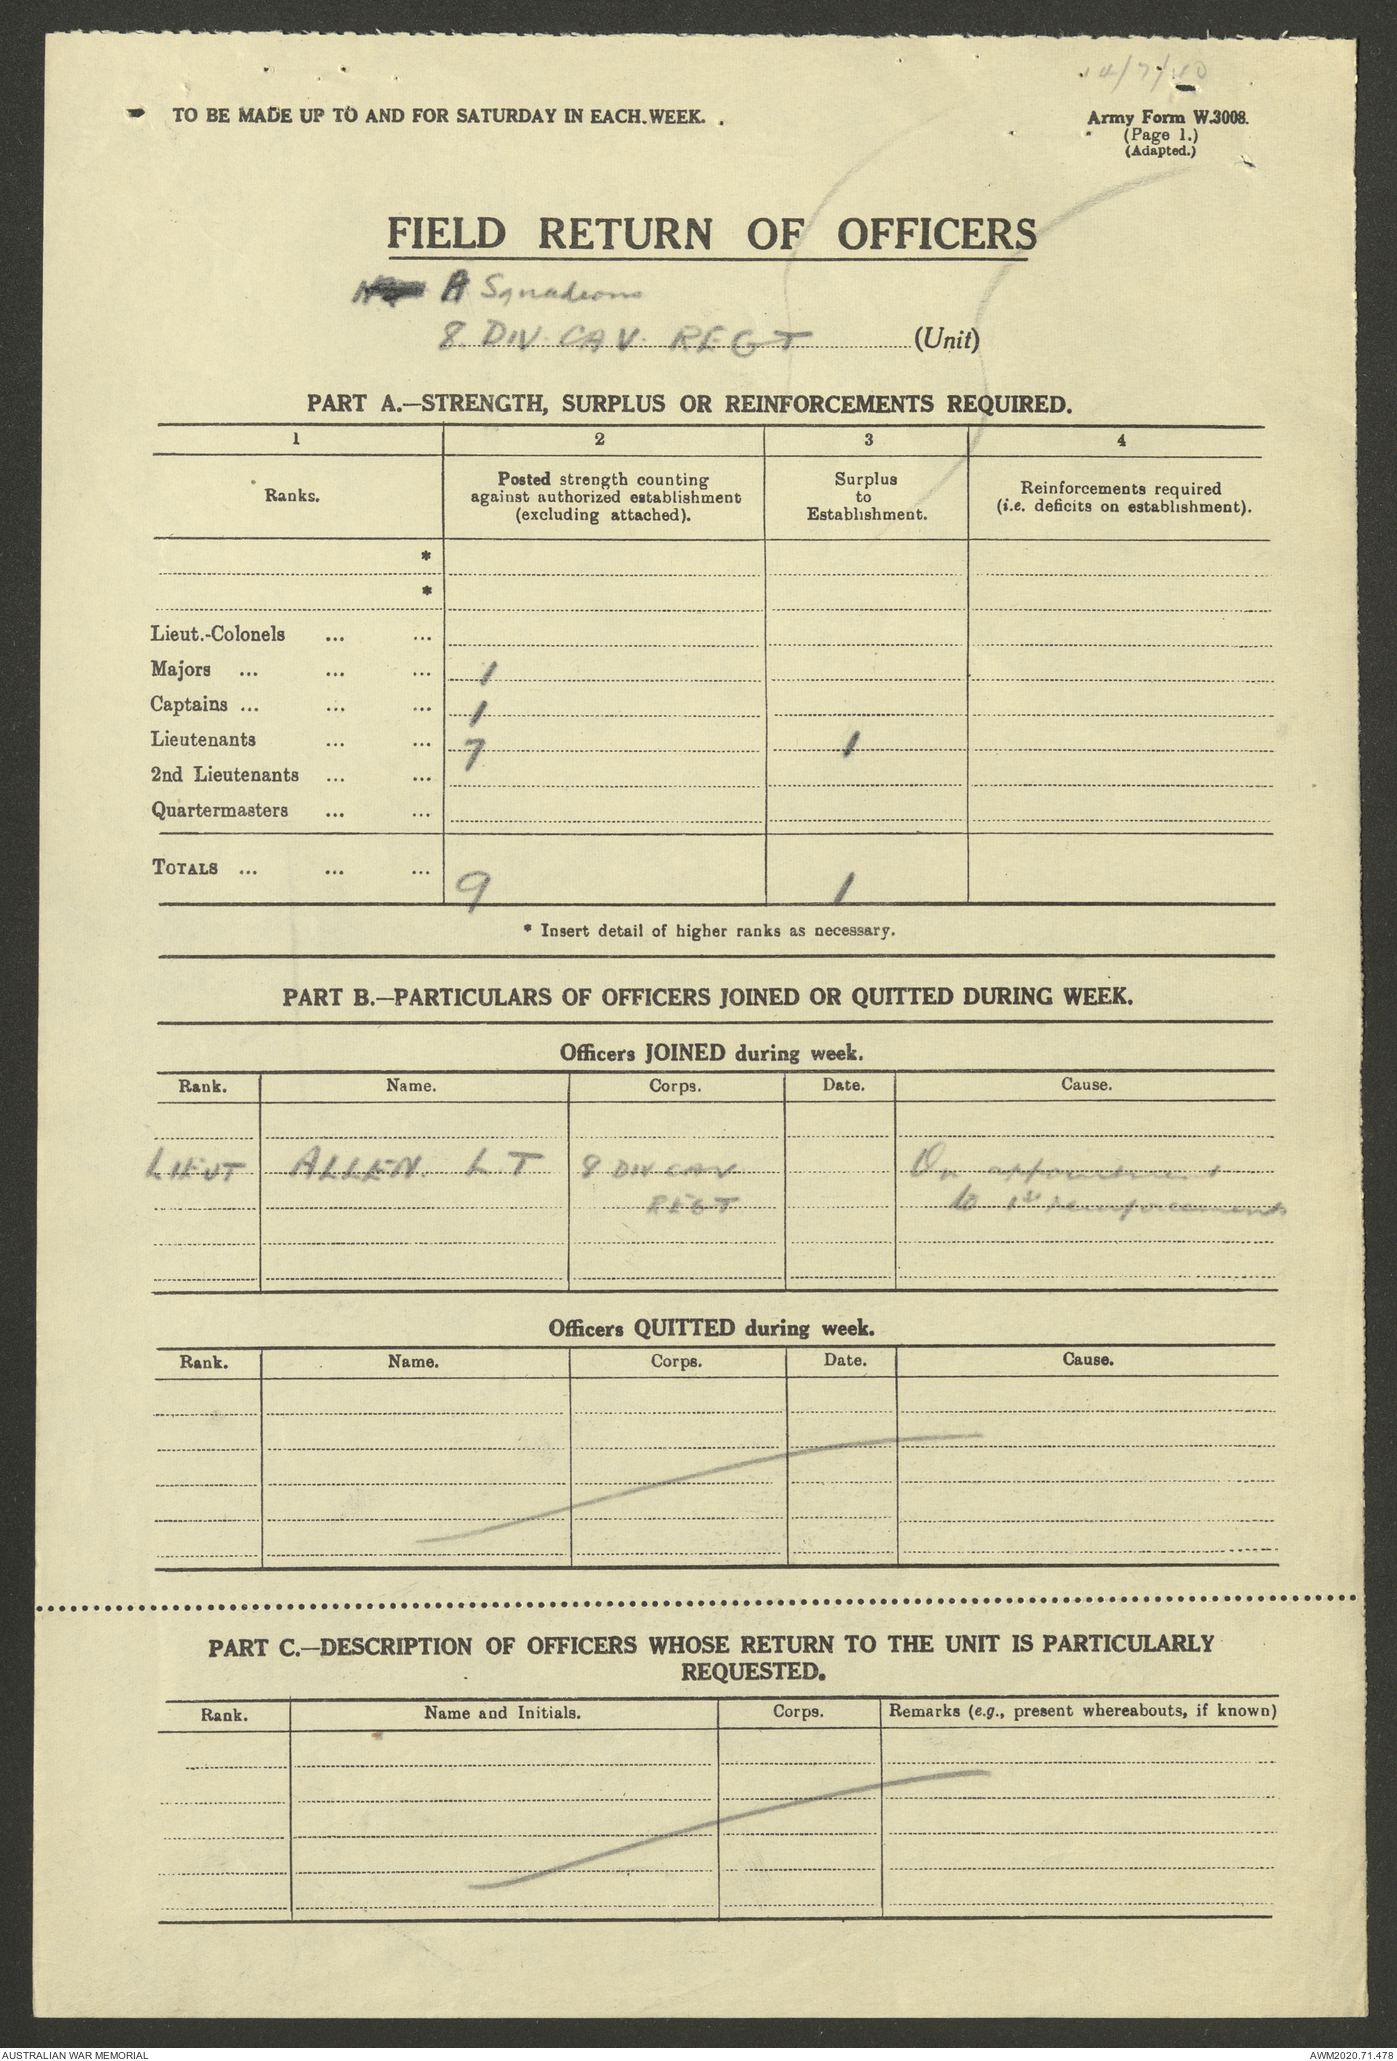 14/7/40
TO BE MADE UP TO AND FOR SATURDAY IN EACH WEEK.
Army Form W.3008.
(Page 1.)
(Adapted.)
FIELD RETURN OF OFFICERS
A Squadrons
8. DIV. CAV. REGT (Unit)
PART A.—STRENGTH, SURPLUS OR REINFORCEMENTS REQUIRED.
1 2 3 4
Ranks.
Posted strength counting
against authorized establishment
(excluding attached).
Surplus
to
Establishment.
Reinforcements required
(i.e. deficits on establishment).
*
*
Lieut.-Colonels ... ...
Majors ... ... ... 1
Captains ... ... ... 1
Lieutenants ... ... 7 1
2nd Lieutenants ... ...
Quartermasters ... ...
TOTALS ... ... ... 9 1
* Insert detail of higher ranks as necessary.
PART B.—PARTICULARS OF OFFICERS JOINED OR QUITTED DURING WEEK.
Officers JOINED during week.
Rank. Name. Corps. Date. Cause.
LIEUT ALLEN. L T 8 DIV CAV On appointment
REGT to 1st reinforcements
Officers QUITTED during week.
Rank. Name. Corps. Date. Cause.
PART C.—DESCRIPTION OF OFFICERS WHOSE RETURN TO THE UNIT IS PARTICULARLY
REQUESTED.
Rank. Name and Initials. Corps. Remarks (e.g., present whereabouts, if known)
AUSTRALIAN WAR MEMORIAL
AWM2020.71.478